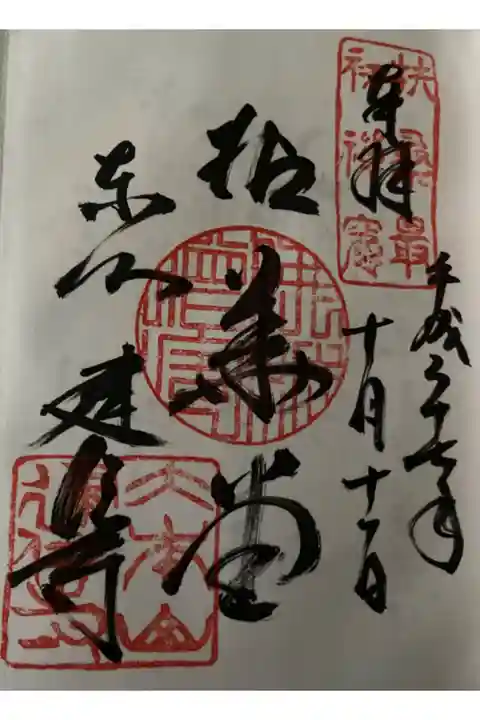 奉拝
扶桑最
初禅窟
平成二十七年
十月十一日
拈華堂
東山建仁寺
大本山
建仁寺